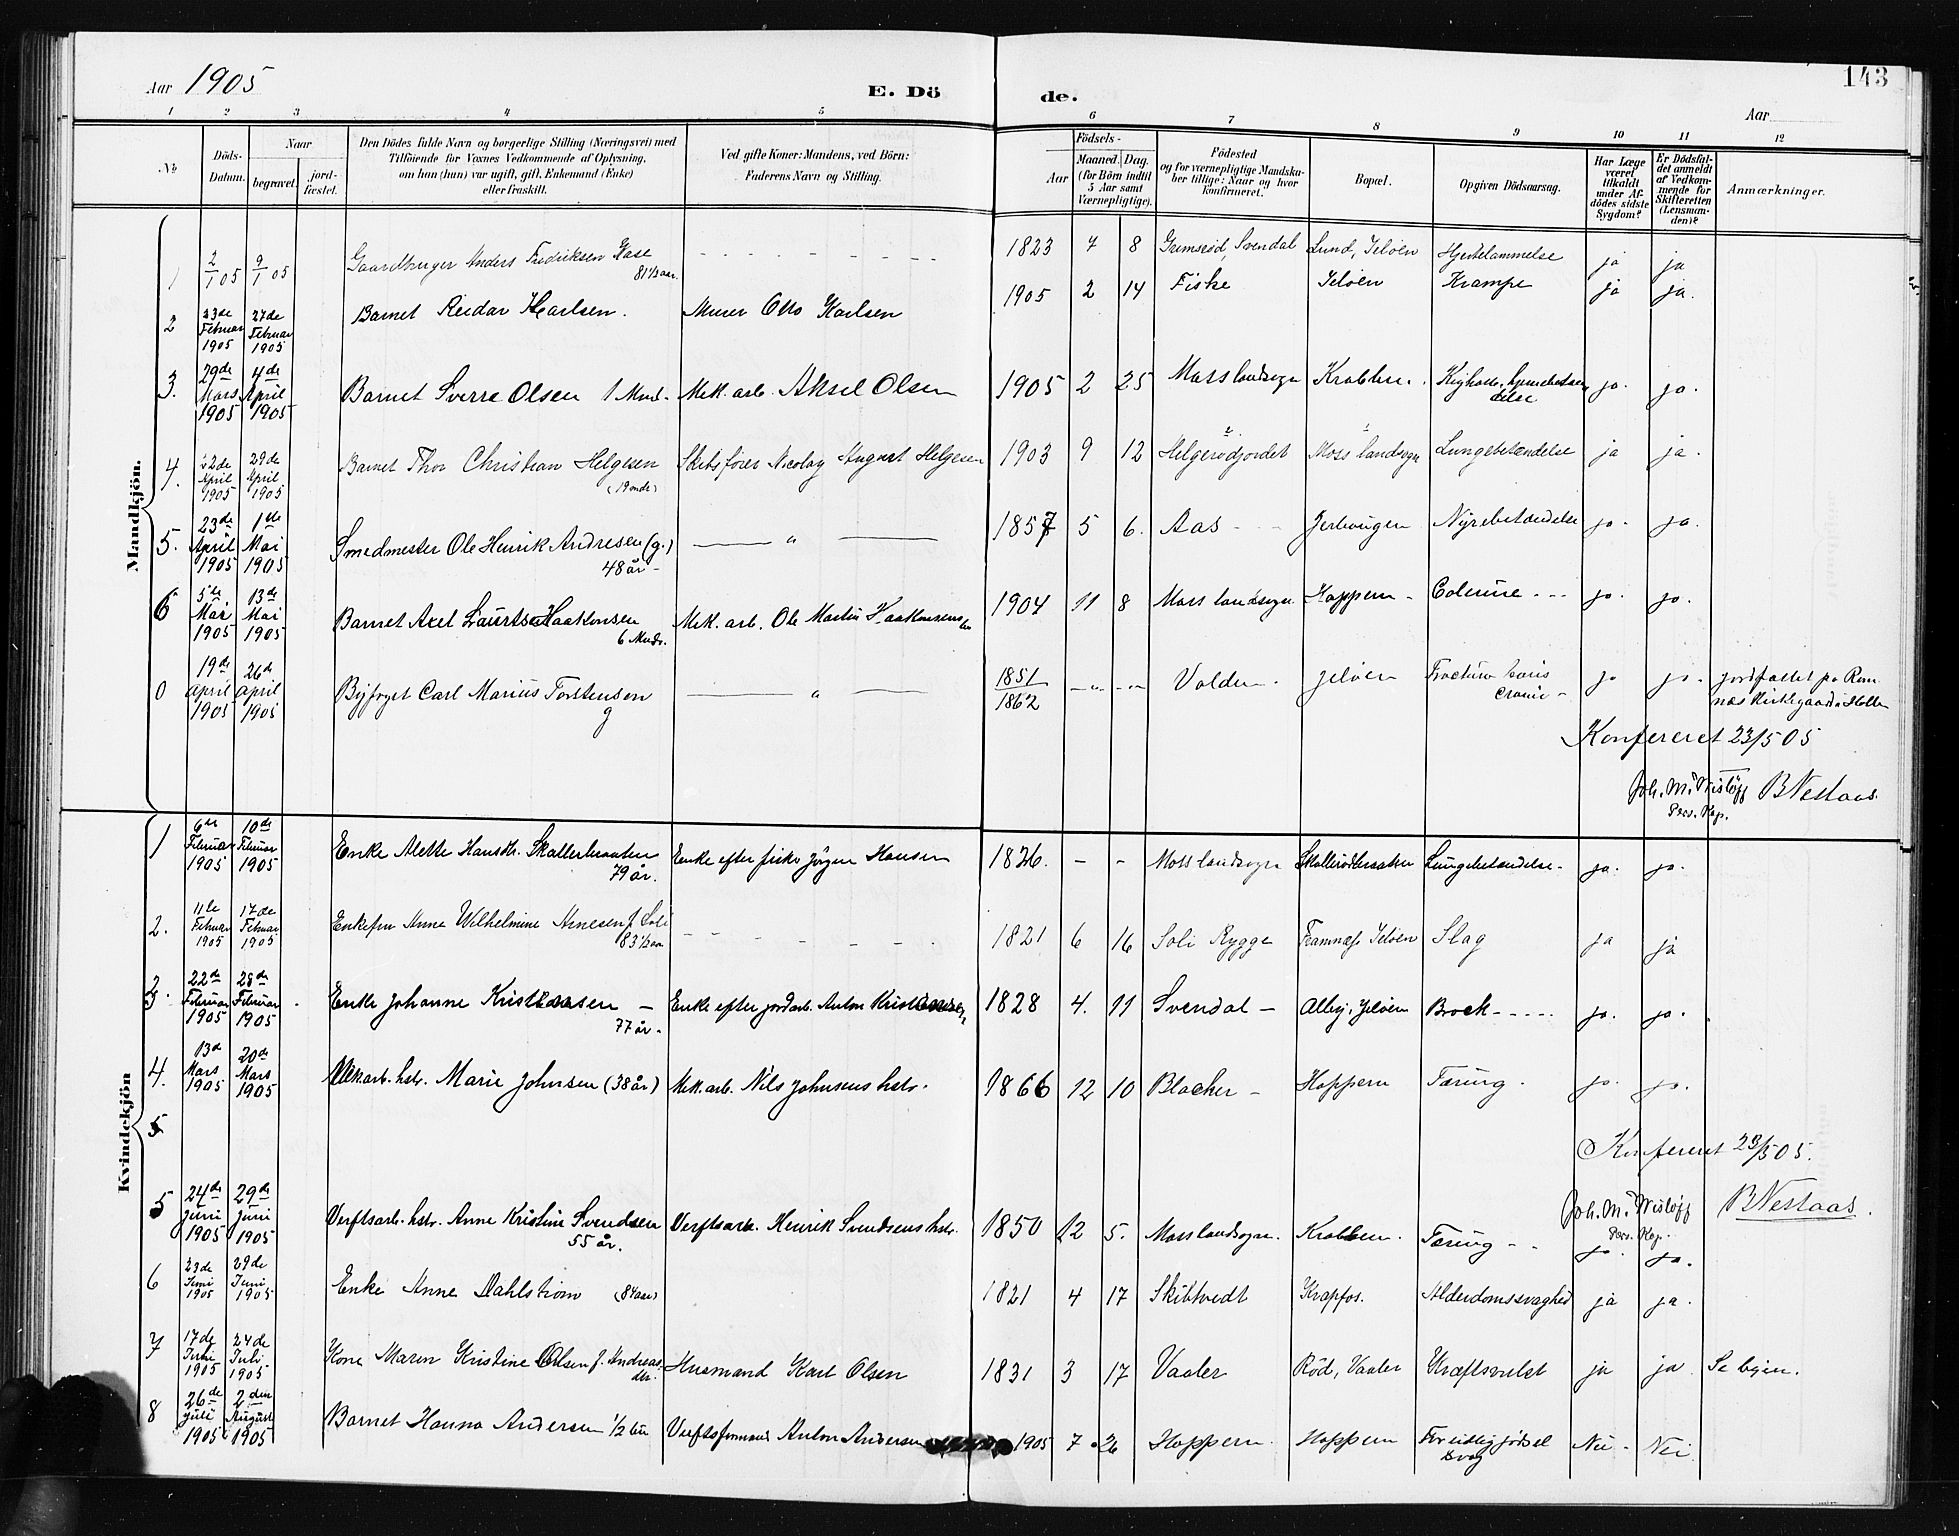 143
Aar 1905
E. Dö de.
Aar
1 2 3 4 5 6 7 8 9 10 11 12
No
Döds-Datum.
Naar
begravet.
jord-fæstet.
Den Dödes fulde Navn og borgerlige Stilling (Næringsvei) med
Tilföiende for Voxnes Vedkommende af Oplysning,
om han (hun) var ugift, gift, Enkemand (Enke)
eller fraskilt.
Ved gifte Koner: Mandens, ved Börn:
Faderens Navn og Stilling.
Födsels-
Aar
Maaned. Dag.
(for Börn indtil
5 Aar samt
Værnepligtige).
Födested
og for værnepligtige Mandska-
ber tillige: Naar og hvor
konfirmeret.
Bopæl.
Opgiven Dödsaarsag.
Har Læge
været
tilkaldt
under Af-
dödes sidste
Sygdom?
Er Dödsfal-
det anmeldt
af Vedkom-
mende for
Skifteretten
(Lensman-
den)?
Anmærkninger.
Mandkjön.
1 2/1 05 9/1 05 Gaardbruger Anders Fredriksen Kase 81 1/3 aar. 1823 7 8 Grimsrød, Svendal Lund, Jeløen Hjertelammelse ja ja
2 23de Februar 1905 27de Februar 1905 Barnet Reidar Karlsen. Murer Otto Karlsen 1905 2 14 Fiske Jeløen Krampe ja ja.
3. 29de Mars 1905 4de April 1905 Barnet Sverre Olsen 1 Mnd. Mek. arb. Aksel Olsen 1905 2 25 Moss landsogn Krabben. Kighoste, ja. ja.
4. 22de April 1905 29de April 1905 Barnet Thor Christian Helgesen (19 mdr) Skibsfører Nicolay August Helgesen 1903 9 12 Helgerødjordet Moss landsogn Lungebetændelse ja ja.
5. 23de April 1905 1ste Mai 1905 Smedmester Ole Henrik Andresen (g.) 48 år - " 1857 5 6. Aas Nyrebetændelse ja. ja.
6 5te Mai 1905 13de Mai 1905 Barnet Axel Laurits Haakonsen 6 Mndr. Mek. arb. Ole Martin Haakonsens 1904 11 8 Moss landsogn. Hoppern - Colerine - - - ja. ja.
0 19de April 1905 26de April 1905 Byfoget Carl Marius Torstensen g " 1851/1862 - " - Volden. Jeløen Fractura basis cranii - ja ja. jordfæstet på Ram
næs Kirkegaard i
Konfereret 23/5 05
Joh. M. Wisløff B Nestaas.
Pers. Kap.
Kvindekjön
1 6te Februar 1905 10de Februar 1905 Enke Alette Hansdtr. Skallerbraaten 79 år. Enke efter fisker Jørgen Hansen 1826. - - Moss landsogn Skallerødbraaten Lungebetændelse - ja. ja.
2. 11te Februar 1905 17de Februar 1905 Enkefru Anne Wilhelmine Arnesen f. Soli 83 1/2 aar 1821 6 16 Soli Rygge Framnæs Jeløen Slag ja ja
3. 22de Februar 1905 28de Februar 1905 Enke Johanne Kristiansen - 77 år - Enke efter jordarb. Anton Kristiansen 1828 4. 11 Svendal - Alby, Jeløen Brock - - - - ja. ja.
4. 13de Mars 1905 20de Mars 1905 Mek. arb. hstr. Marie Johnsen (38 år) Mek. arb. Nils Johnsens hstr. 1866 12 10 Blacker - Hoppern Tæring. ja. ja.
5
Konfereret 23/5 05.
Joh. M. Wisløff B Nestaas.
Pers. Kap.
5 24de Juni 1905 29de Juni 1905 Verftsarb. hstr. Anne Kristine Svendsen 55 år. Verftsarb. Henrik Svendsens hstr. 1850 12 5. Moss landsogn. Krabben. Tæring - - ja. ja.
6 23de Juni 1905 29de Juni 1905 Enke Anne Dahlstrøm (84 aar) 1821 4 17 Skibtvedt Krapfos. Alderdomssvaghed ja ja.
7 17de Juli 1905 24de Juli 1905 Kone Maren Kristine Olsen f. Andreas-dtr. Husmand Karl Olsen 1831 3 17 Vaaler Rød, Vaaler Kræftsvulst ja ja Se byen.
8 26de Juli 1905 2den August 1905 Barnet Hanna Andersen 1/2 Verftsformand Anton Andersen 1905 7 26 Hoppern. Hoppern For tidlig fødsel svag Nei - Nei